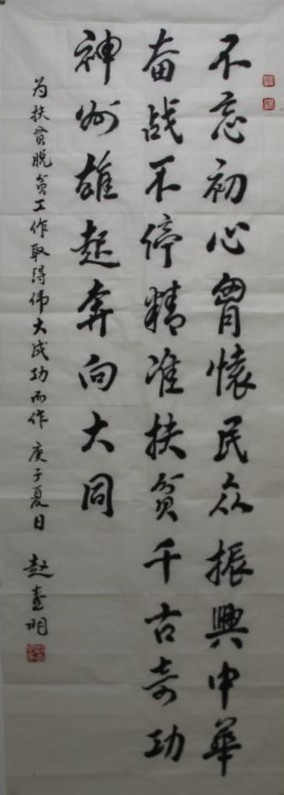 不忘初心胸怀民众振興中華
奋战不停精准扶贫千古奇功
神州雄起奔向大同
为扶贫脱贫工作取得伟大成功而作 庚子夏日